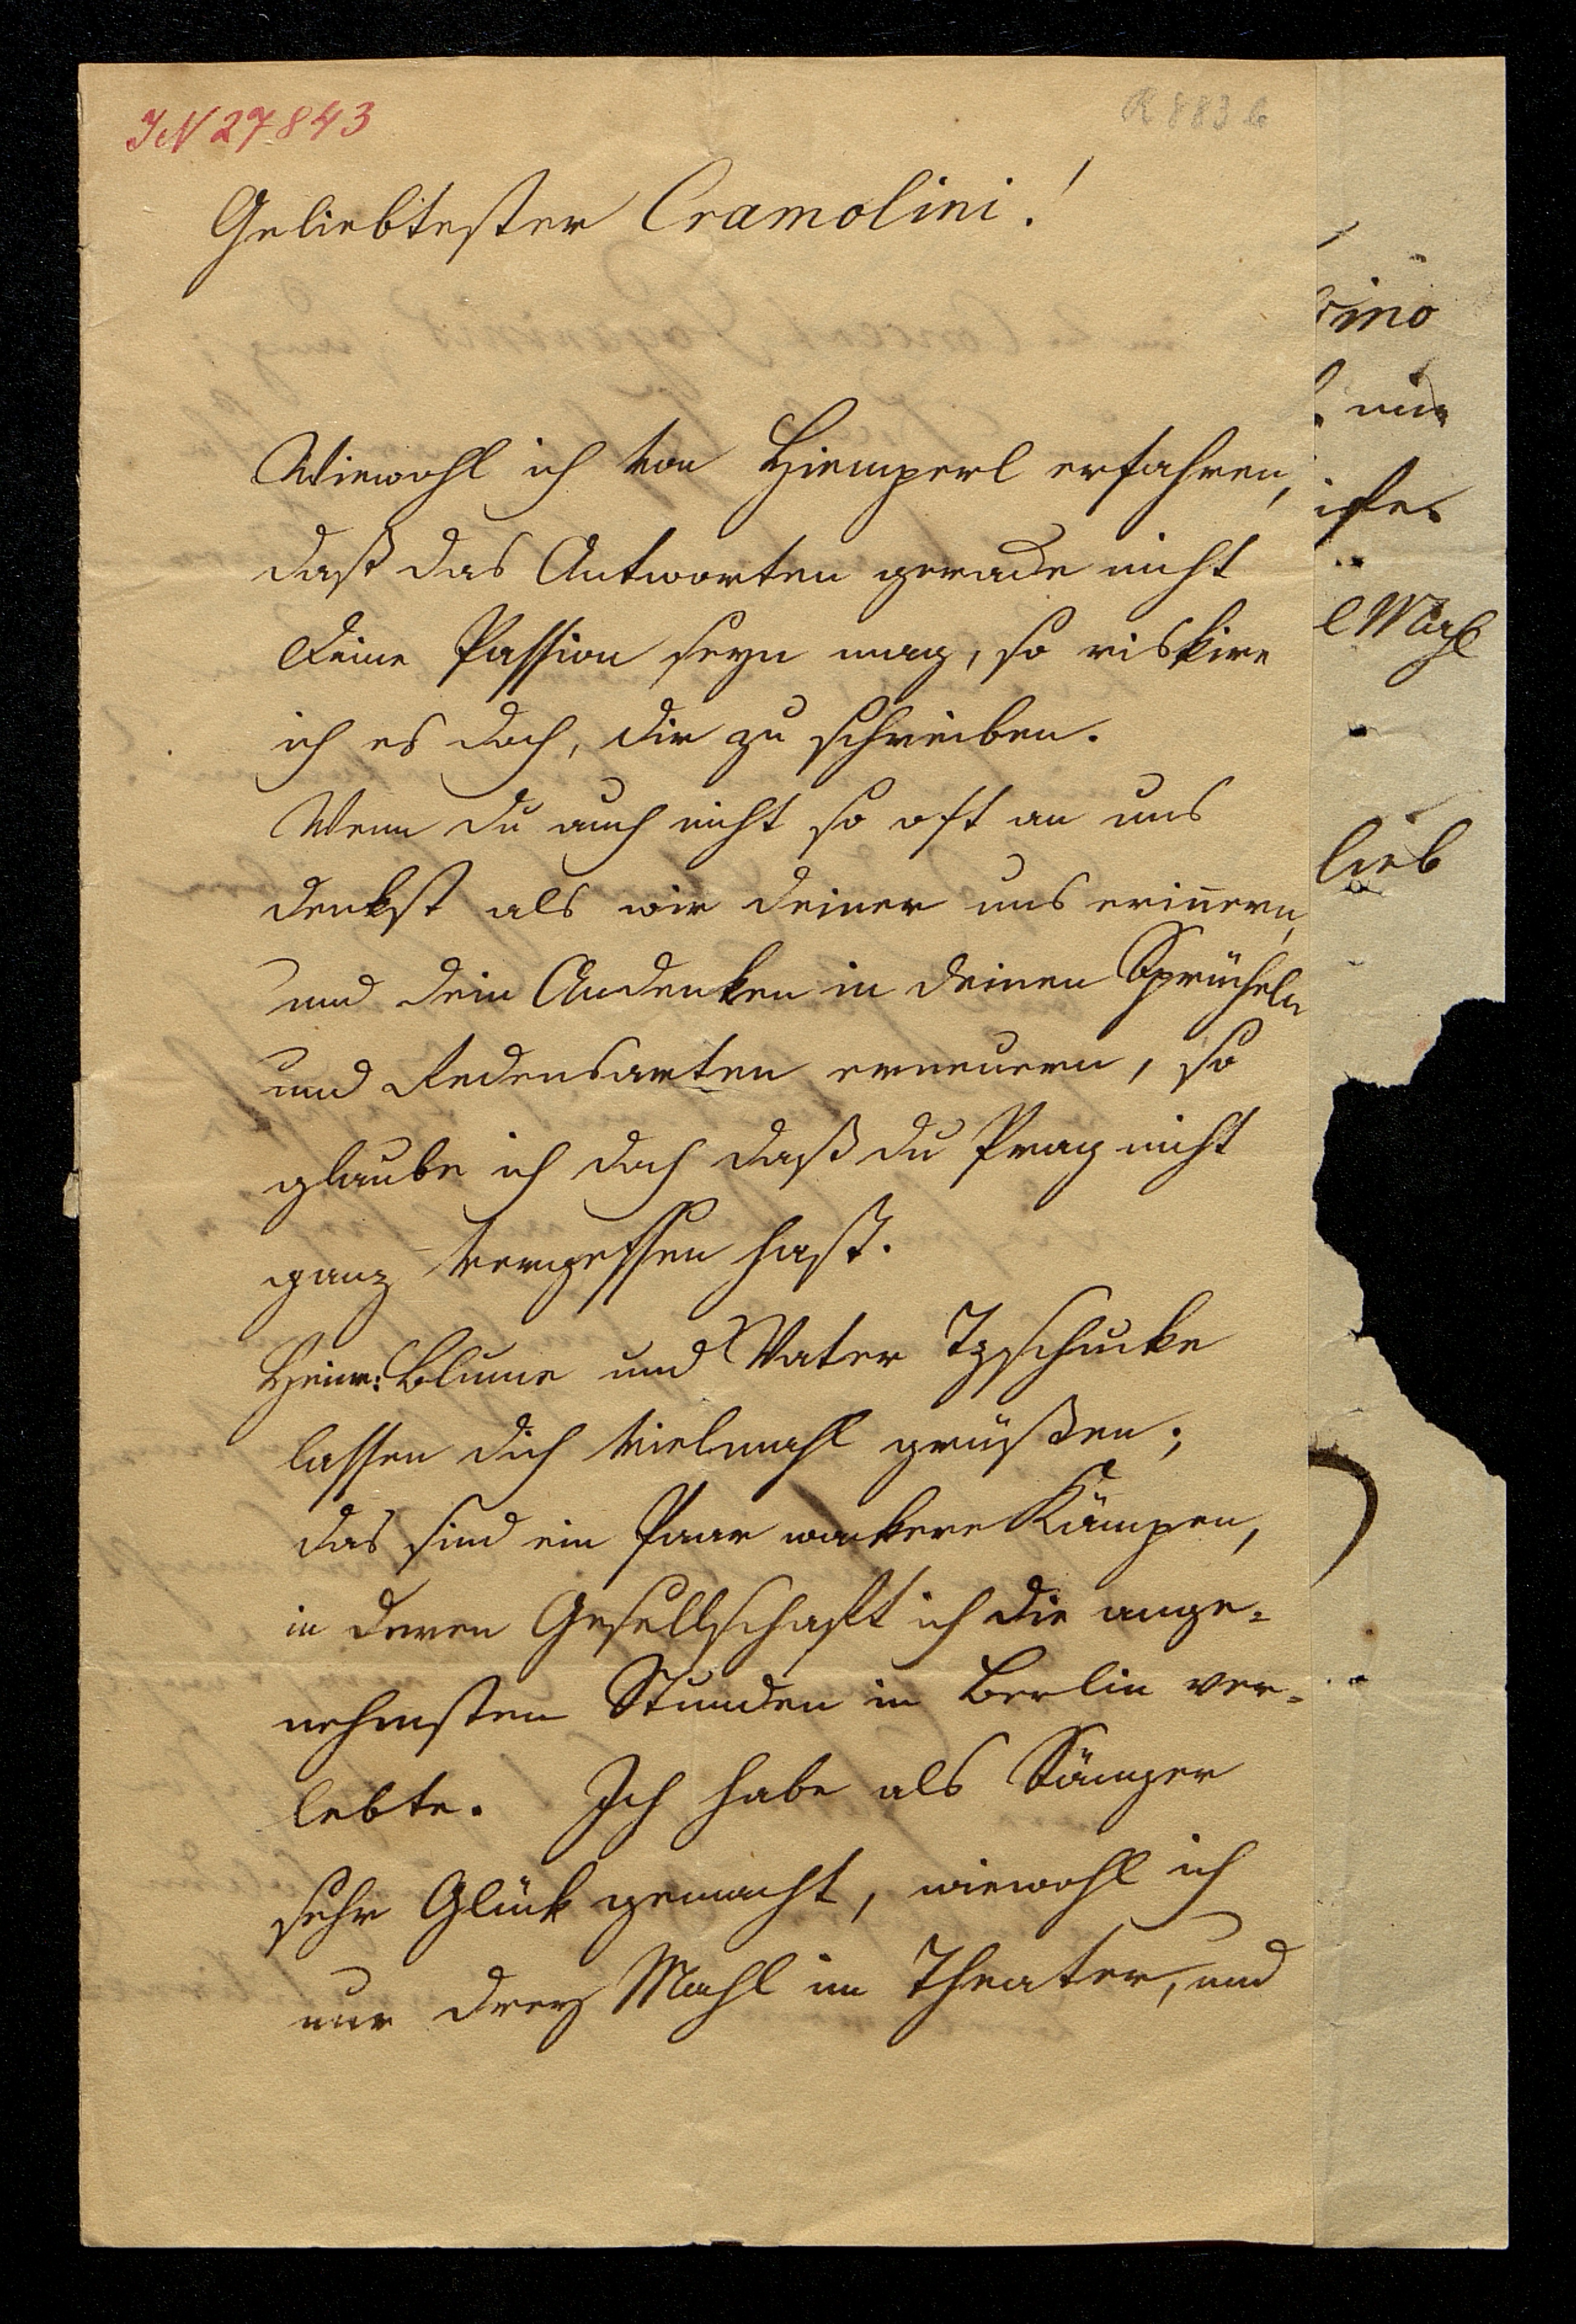 IN 27843
R 883 b
Geliebtester Cramolini!
Wiewohl ich von Hiemperl erfahren,
daß das Antworten gerade nicht
Deine Passion seyn mag, so riskire
ich es doch, dir zu schreiben.
Wenn du auch nicht so oft an uns
denkst als wir deiner uns erinnern,
und dein Andenken in deinen Sprücheln
und Redensarten erneuern, so
glaube ich doch daß du Prag nicht
ganz vergessen hast.
Heinr: Blume und Vater Tzschucke
lassen dich vielmahl grüßen;
das sind ein Paar wackere Kämpen,
in deren Gesellschaft ich die ange-
nehmsten Stunden in Berlin ver-
lebte. Ich habe als Sänger
sehr Glück gemacht, wiewohl ich
nur drey Mahl im Theater, und
ino
lieb